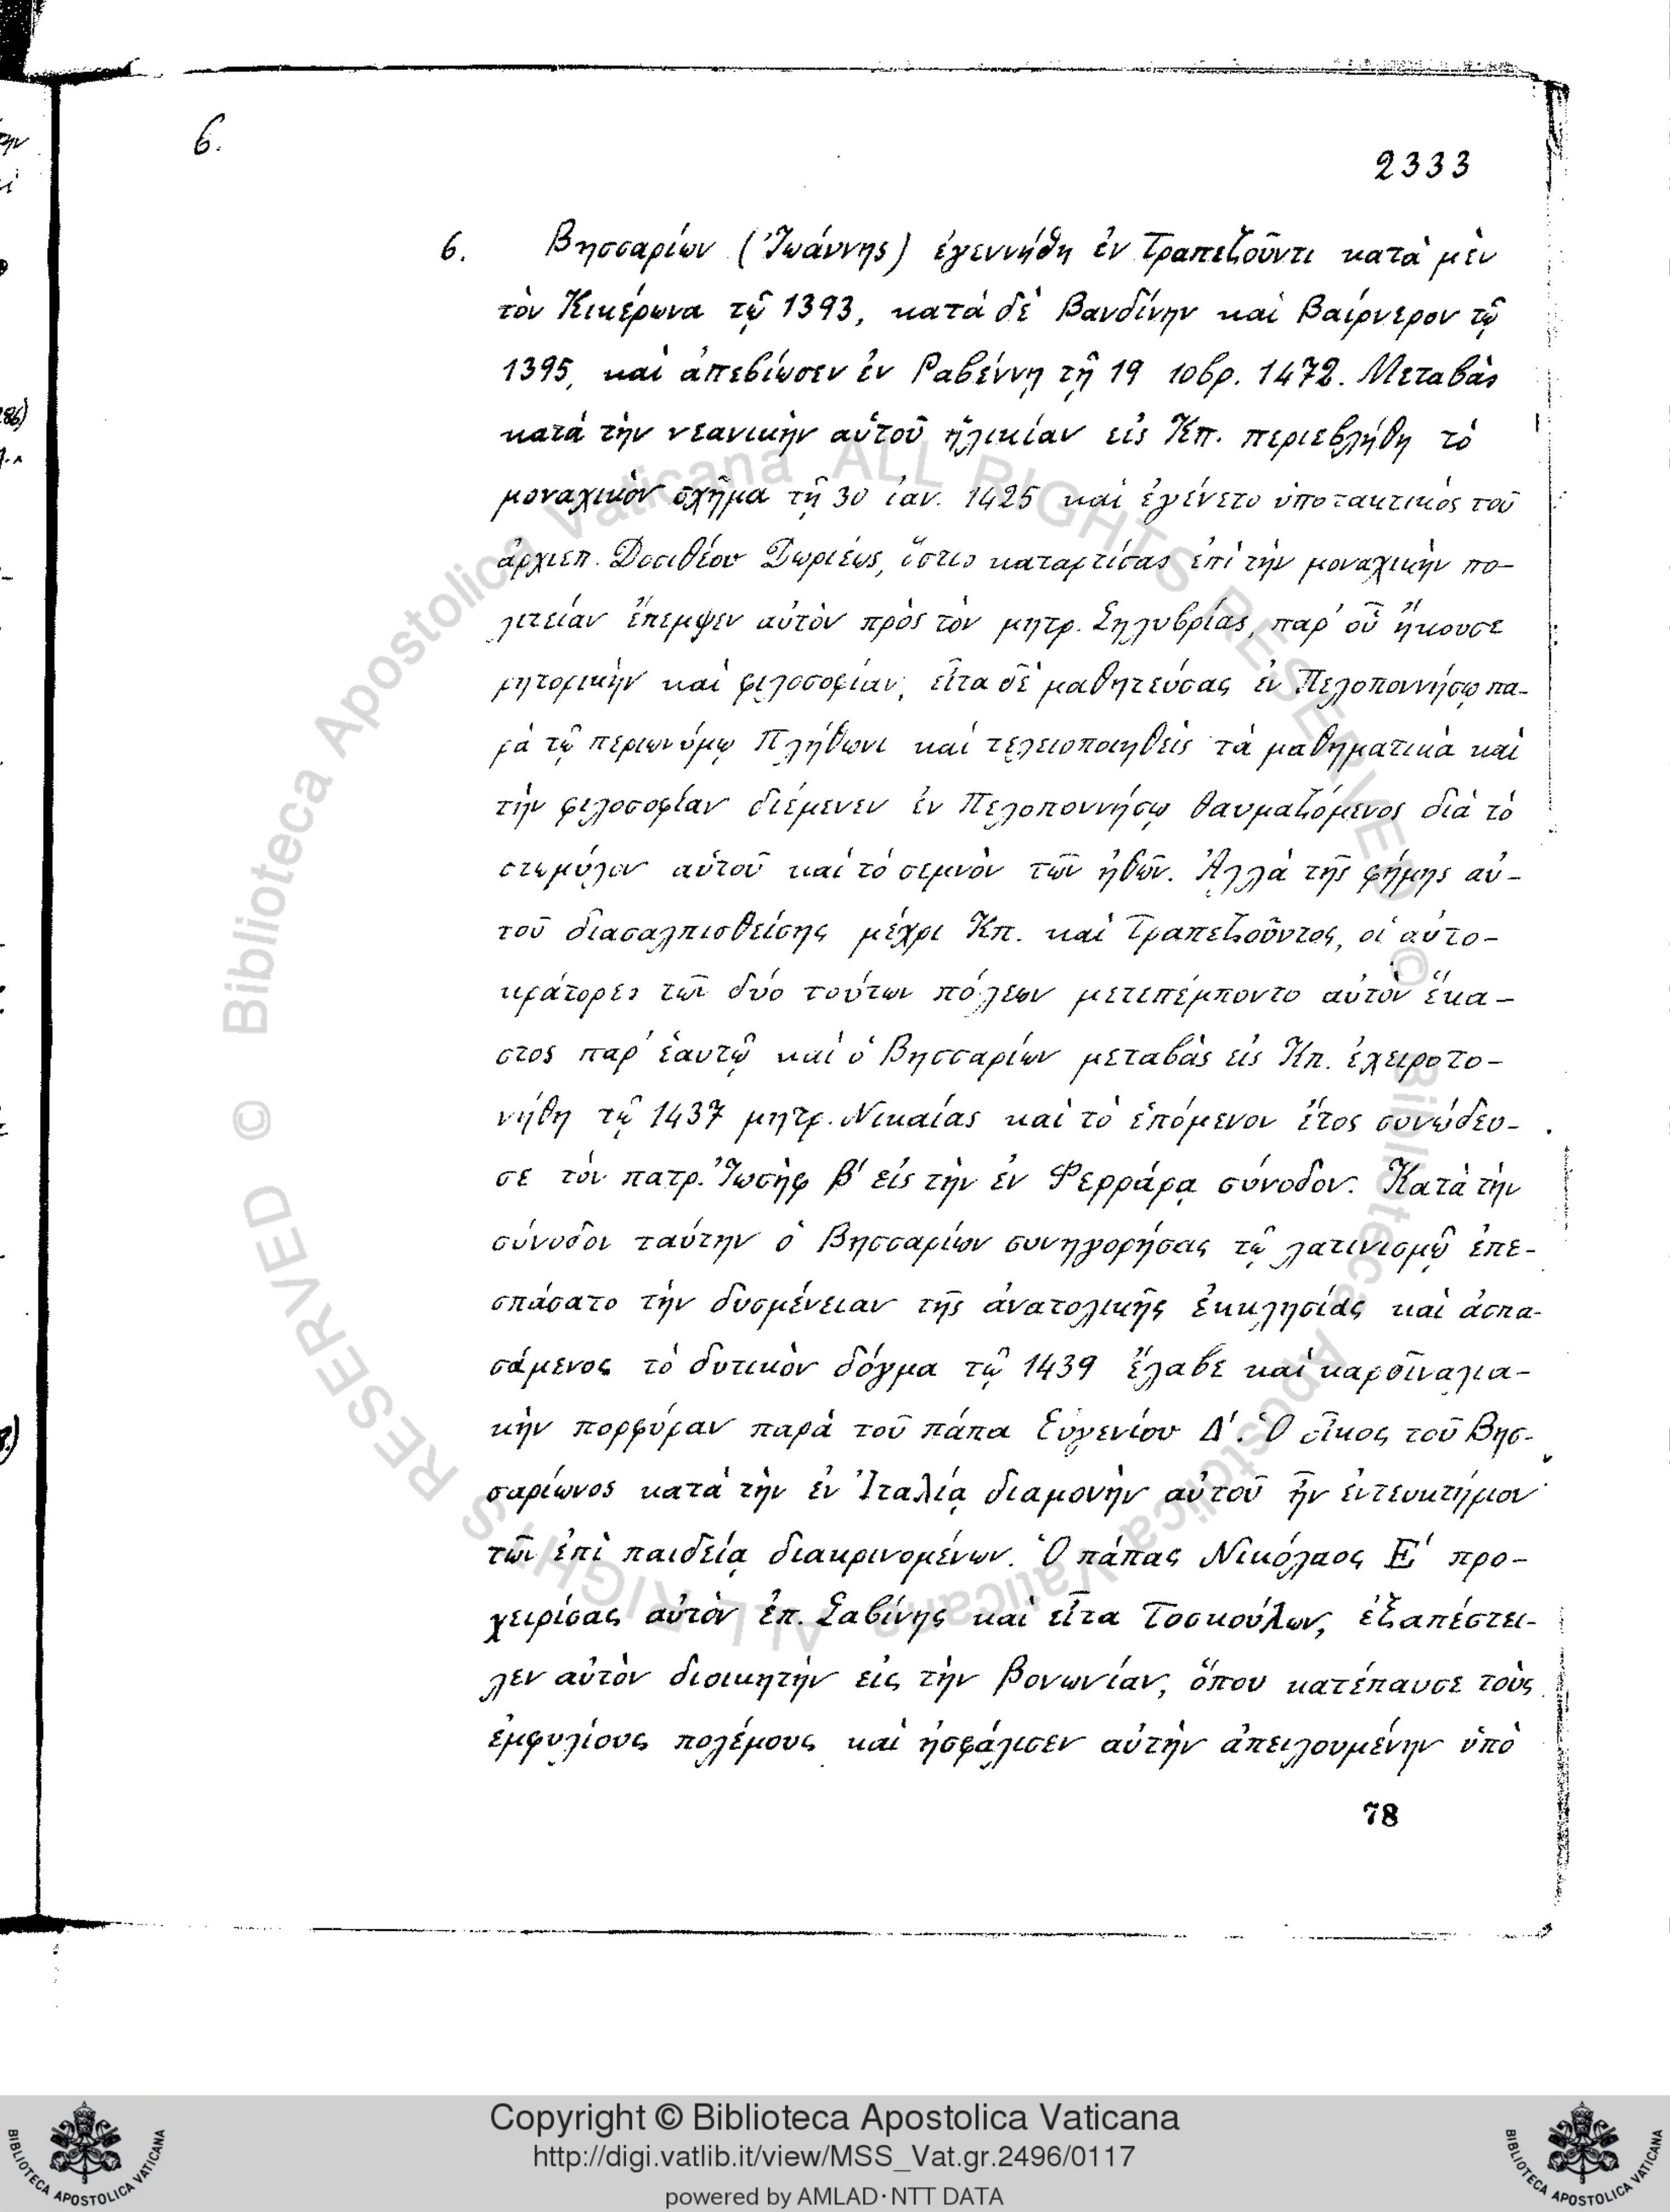 6.
2333
6. Βησσαρίων (Ἰωάννης) ἐγεννήθη ἐν Τραπεζοῦντι κατὰ μὲν
τὸν Κικέρωνα τῷ 1393, κατὰ δὲ Βανδίνην καὶ Βαίρνερον τῷ
1395, καὶ ἀπεβίωσεν ἐν Ραβέννῃ τῇ 19 10βρ. 1472. Μεταβὰς
κατὰ τὴν νεανικὴν αὐτοῦ ἡλικίαν εἰς Κπ. περιεβλήθη τὸ
μοναχικὸν σχῆμα τῇ 30 ἰαν. 1425 καὶ ἐγένετο ὑποτακτικὸς τοῦ
ἀρχιεπ. Δοσιθέου Δωριέως, ὅστις καταρτίσας ἐπὶ τὴν μοναχικὴν πο-
λιτείαν ἔπεμψεν αὐτὸν πρὸς τὸν μητρ. Σηλυβρίας, παρ' οὗ ἤκουσε
ρητορικὴν καὶ φιλοσοφίαν, εἶτα δὲ μαθητεύσας ἐν Πελοποννήσῳ πα-
ρὰ τῷ περιωνύμῳ Πλήθωνι καὶ τελειοποιηθεὶς τὰ μαθηματικὰ καὶ
τὴν φιλοσοφίαν διέμενεν ἐν Πελοποννήσῳ θαυμαζόμενος διὰ τὸ
στωμύλον αὐτοῦ καὶ τὸ σεμνὸν τῶν ἠθῶν. Ἀλλὰ τῆς φήμης αὐ-
τοῦ διασαλπισθείσης μέχρι Κπ. καὶ Τραπεζοῦντος, οἱ αὐτο-
κράτορες τῶν δύο τούτων πόλεων μετεπέμποντο αὐτὸν ἕκα-
στος παρ' ἑαυτῷ καὶ ὁ Βησσαρίων μεταβὰς εἰς Κπ. ἐχειροτο-
νήθη τῷ 1437 μητρ. Νικαίας καὶ τὸ ἑπόμενον ἔτος συνώδευ-
σε τὸν πατρ. Ἰωσὴφ β' εἰς τὴν ἐν Φερράρᾳ σύνοδον. Κατὰ τὴν
σύνοδον ταύτην ὁ Βησσαρίων συνηγορήσας τῷ λατινισμῷ ἐπε-
σπάσατο τὴν δυσμένειαν τῆς ἀνατολικῆς ἐκκλησίας καὶ ἀσπα-
σάμενος τὸ δυτικὸν δόγμα τῷ 1439 ἔλαβε καὶ καρδιναλια-
κὴν πορφύραν παρὰ τοῦ πάπα Εὐγενίου Δ'. Ὁ οἶκος τοῦ Βησ-
σαρίωνος κατὰ τὴν ἐν Ἰταλίᾳ διαμονὴν αὐτοῦ ἦν ἐντευκτήριον
τῶν ἐπὶ παιδείᾳ διακρινομένων. Ὁ πάπας Νικόλαος Ε' προ-
χειρίσας αὐτὸν ἐπ. Σαβίνης καὶ εἶτα Τοσκούλων, ἐξαπέστει-
λεν αὐτὸν διοικητὴν εἰς τὴν Βονωνίαν, ὅπου κατέπαυσε τοὺς
ἐμφυλίους πολέμους καὶ ἠσφάλισεν αὐτὴν ἀπειλουμένην ὑπὸ
78
© Biblioteca Apostolica Vaticana ALL RIGHTS RESERVED © Biblioteca Apostolica Vaticana ALL RIGHTS RESERVED
Copyright © Biblioteca Apostolica Vaticana
http://digi.vatlib.it/view/MSS_Vat.gr.2496/0117
powered by AMLAD·NTT DATA
BIBLIOTECA APOSTOLICA VATICANA
BIBLIOTECA APOSTOLICA VATICANA